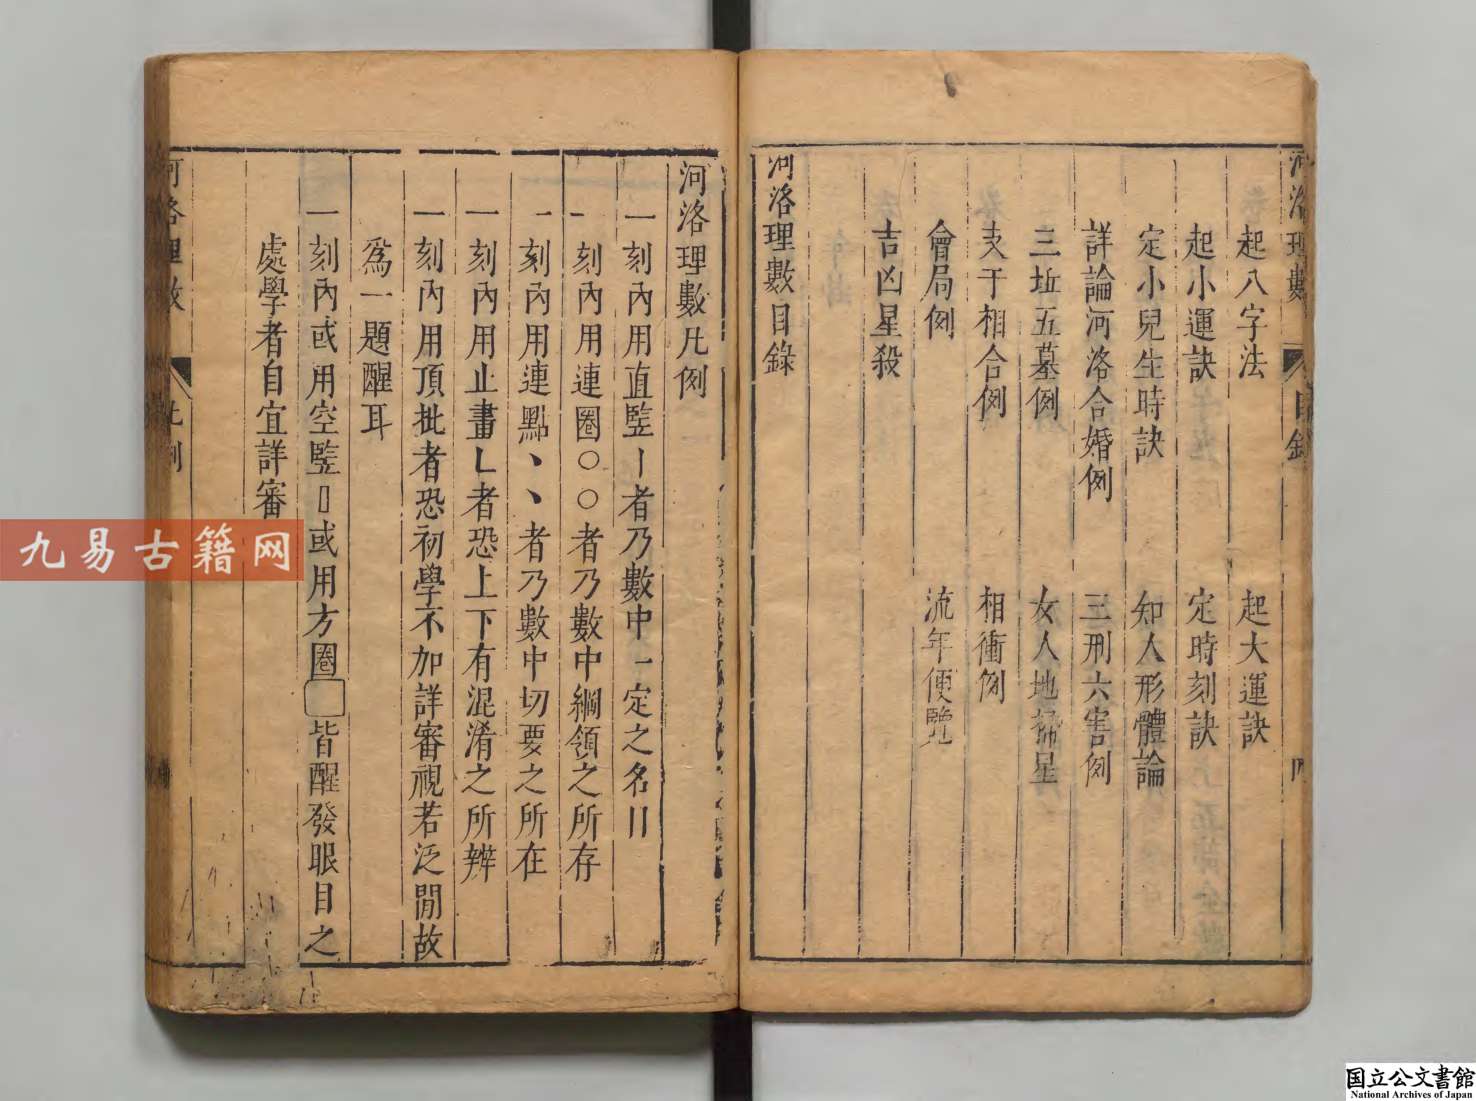 河洛理數
目錄
四
起八字法
起大運訣
起小運訣
定時刻訣
定小兒生時訣
知人形體論
詳論河洛合婚例
三刑六害例
三坵五墓例
女人地掃星
支干相合例
相衝例
會局例
流年便覽
吉凶星殺
河洛理數目錄
河洛理數凡例
一刻內用直竪丨者乃數中一定之名〢
一刻內用連圈○○者乃數中綱領之所存
一刻內用連點丶丶者乃數中切要之所在
一刻內用止畫乚者恐上下有混淆之所辨
一刻內用頂批者恐初學不加詳審視若泛閒故
爲一題醒耳
一刻內或用空竪▯或用方圈□皆醒發眼目之
處學者自宜詳審
河洛理數
凡例
九易古籍网
国立公文書館
National Archives of Japan